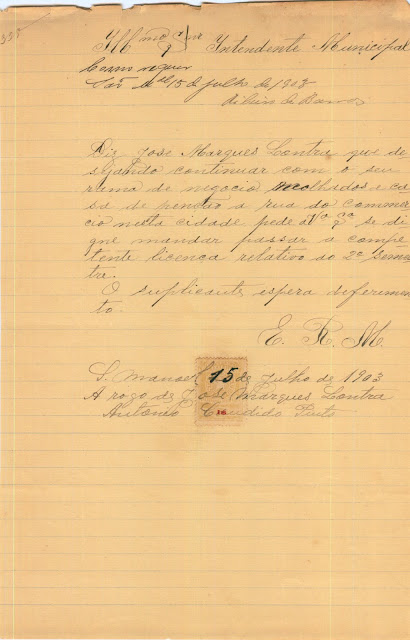 Illmo Exmo Snr Intendente Municipal
Como requer
São Mel 15 de julho de 1903
de Barros
Diz Jose Marques Contra que de
sejando continuar com o seu
rama de negocio molhados e ca
sa de pensão a rua do Commer
cio nesta cidade pede a Va Sa se di
gne mandar passar a compe
tente licença relativo ao 2o semes
tre.
O suplicante espera deferimen
to.
E. R. M.
S. Manoel 15 de Julho de 1903
A rogo de Jose Marques Contra
Antonio Candido Pinto